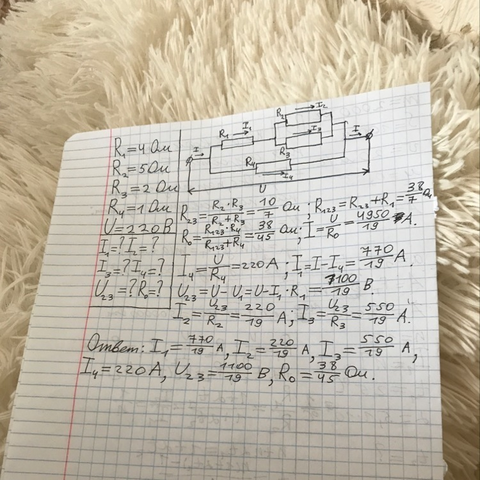 R₁=4 Ом
R₂=5 Ом
R₃=2 Ом
R₄=1 Ом
U=220 В
I=? I₁=? I₂=?
I₃=? I₄=?
U₂₃=? R₀=?
I R₁ I₁ R₂ I₂ I₃ R₃ R₄ I₄ I
U
R₂₃=R₂·R₃/R₂+R₃=10/7 Ом; R₁₂₃=R₂₃+R₁=38/7 Ом
R₀=R₁₂₃·R₄/R₁₂₃+R₄=38/45 Ом; I=U/R₀=4950/19 А.
I₄=U/R₄=220 А; I₁=I-I₄=770/19 А.
U₂₃=U-U₁=U-I₁·R₁=1100/19 В
I₂=U₂₃/R₂=220/19 А; I₃=U₂₃/R₃=550/19 А.
Ответ: I₁=770/19 А, I₂=220/19 А, I₃=550/19 А,
I₄=220 А, U₂₃=1100/19 В, R₀=38/45 Ом.